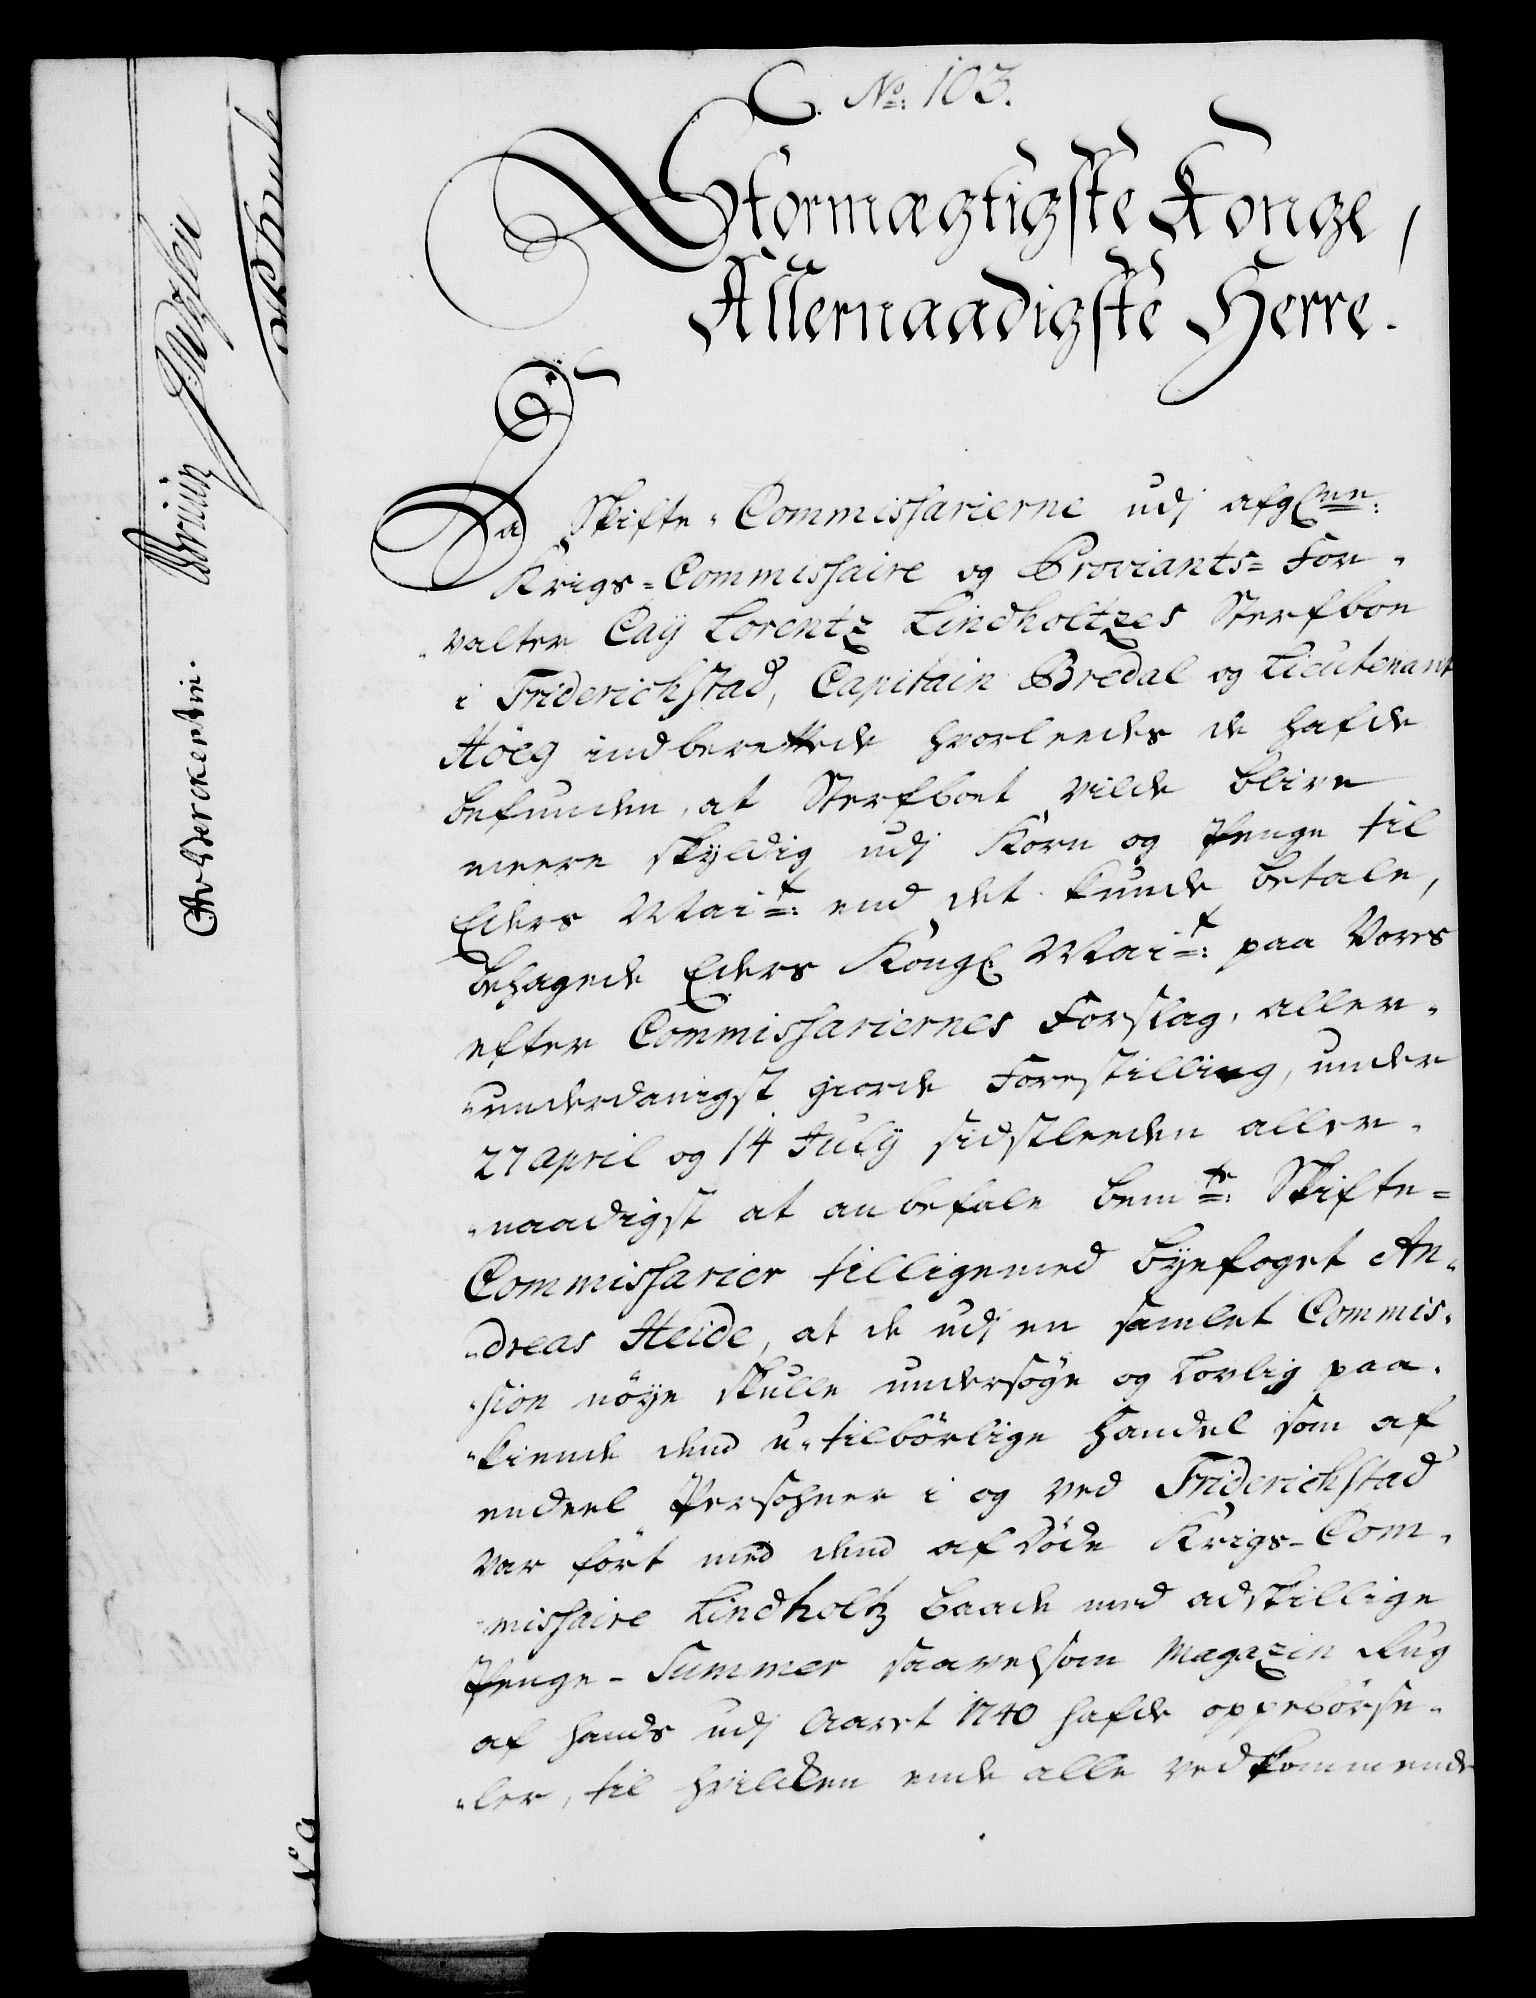 C. No: 103.
Stormægtigste Konge,
Allernaadigste Herre.
Da Skifte-Commissarierne udj afgl: ne:
Krigs-Commissaire og Proviants-For-
-valter Caÿ Lorentz Lindholtzes Sterfboe
i Friderichstad, Capitain Bredal og Lieutenant
Höeg indberettede hvorleedes de hafde
befunden, at Sterfboet vilde blive
meere skÿldig udj Korn og Penge til
Eders Mai:t: end det kunde betale,
behagede Eders Kongl: Mai:t: paa Vores
efter Commissariernes Forslag, aller-
-underdanigst giorde Forestilling, under
27 April og 14 Julÿ sidstleeden aller-
-naadigst at anbefale bem:te: Skifte-
Commissarier tilligemed Bÿefoget An-
-dreas Heide, at de udj en samlet Commis-
-sion nöÿe skulle undersöge og Lovlig paa-
-kiende dend u-tilbörlige Handel som af
endeel Persohner i og ved Friderichstad
var fört med dend afdöde Krigs-Com-
-missaire Lindholtz baade med adskillige
Penge-Summer saavelsom Magazin Rug
af hands udj Aaret 1740 hafde oppebörse-
-ler, til hvilken ende alle vedkommende